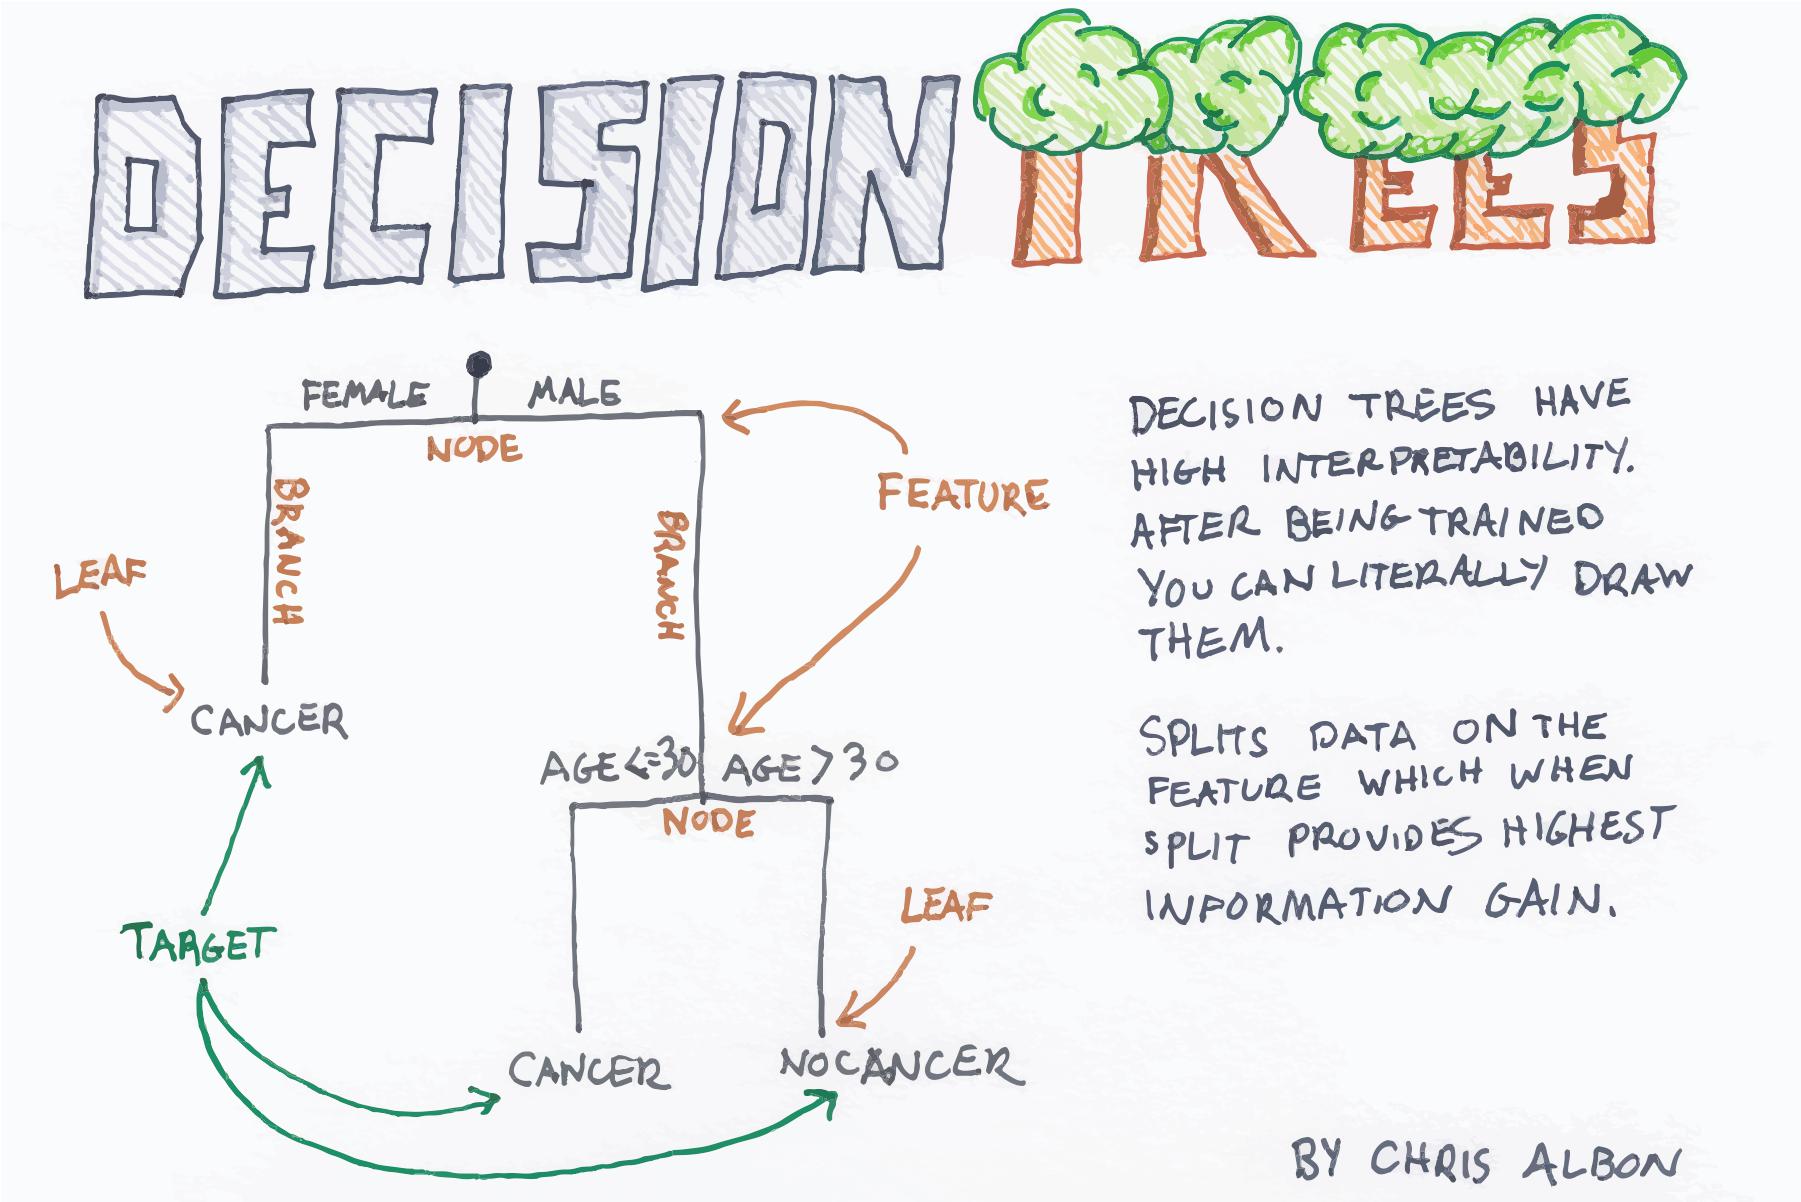 DECISION TREES
FEMALE MALE
NODE
BRANCH
BRANCH
FEATURE
LEAF
CANCER
AGE <=30 AGE > 30
NODE
LEAF
TARGET
CANCER
NO CANCER
DECISION TREES HAVE
HIGH INTERPRETABILITY.
AFTER BEING TRAINED
YOU CAN LITERALLY DRAW
THEM.
SPLITS DATA ON THE
FEATURE WHICH WHEN
SPLIT PROVIDES HIGHEST
INFORMATION GAIN.
BY CHRIS ALBON